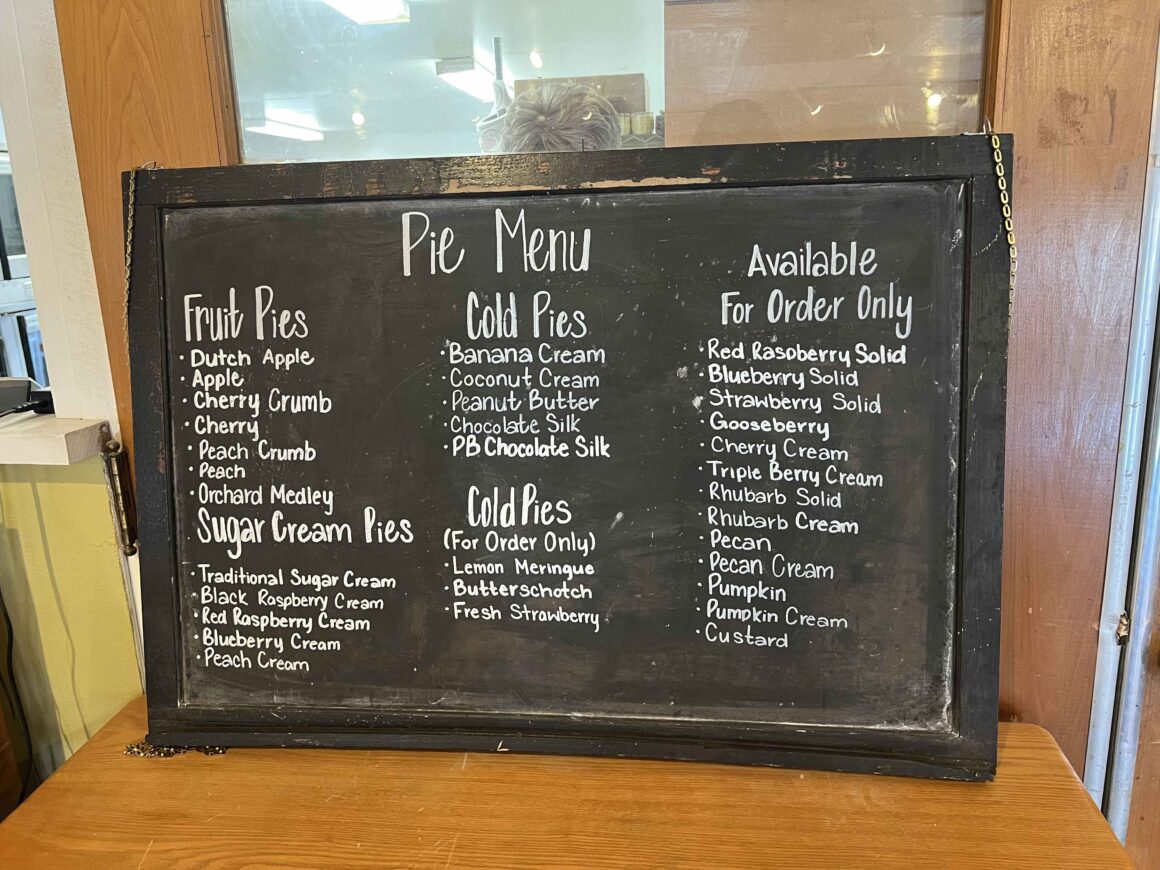 Pie Menu
Fruit Pies
· Dutch Apple
· Apple
· Cherry Crumb
· Cherry
· Peach Crumb
· Peach
· Orchard Medley
Sugar Cream Pies
· Traditional Sugar Cream
· Black Raspberry Cream
· Red Raspberry Cream
· Blueberry Cream
· Peach Cream
Cold Pies
· Banana Cream
· Coconut Cream
· Peanut Butter
· Chocolate Silk
· PB Chocolate Silk
Cold Pies
(For Order Only)
· Lemon Meringue
· Butterschotch
· Fresh Strawberry
Available
For Order Only
· Red Raspberry Solid
· Blueberry Solid
· Strawberry Solid
· Gooseberry
· Cherry Cream
· Triple Berry Cream
· Rhubarb Solid
· Rhubarb Cream
· Pecan
· Pecan Cream
· Pumpkin
· Pumpkin Cream
· Custard